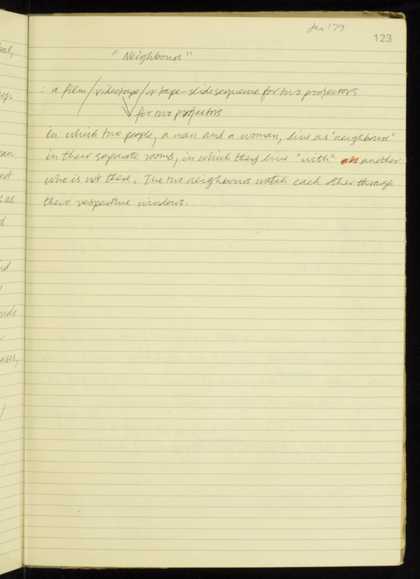 Jan '79
123
"Neighbours"
: a film/videotape/or tape-slide sequence for two projectors
for two projectors
in which two people, a man and a woman, live as "neighbours"
in their separate rooms, in which they live "with" another
who is not there. The two neighbours watch each other through
their respective windows.